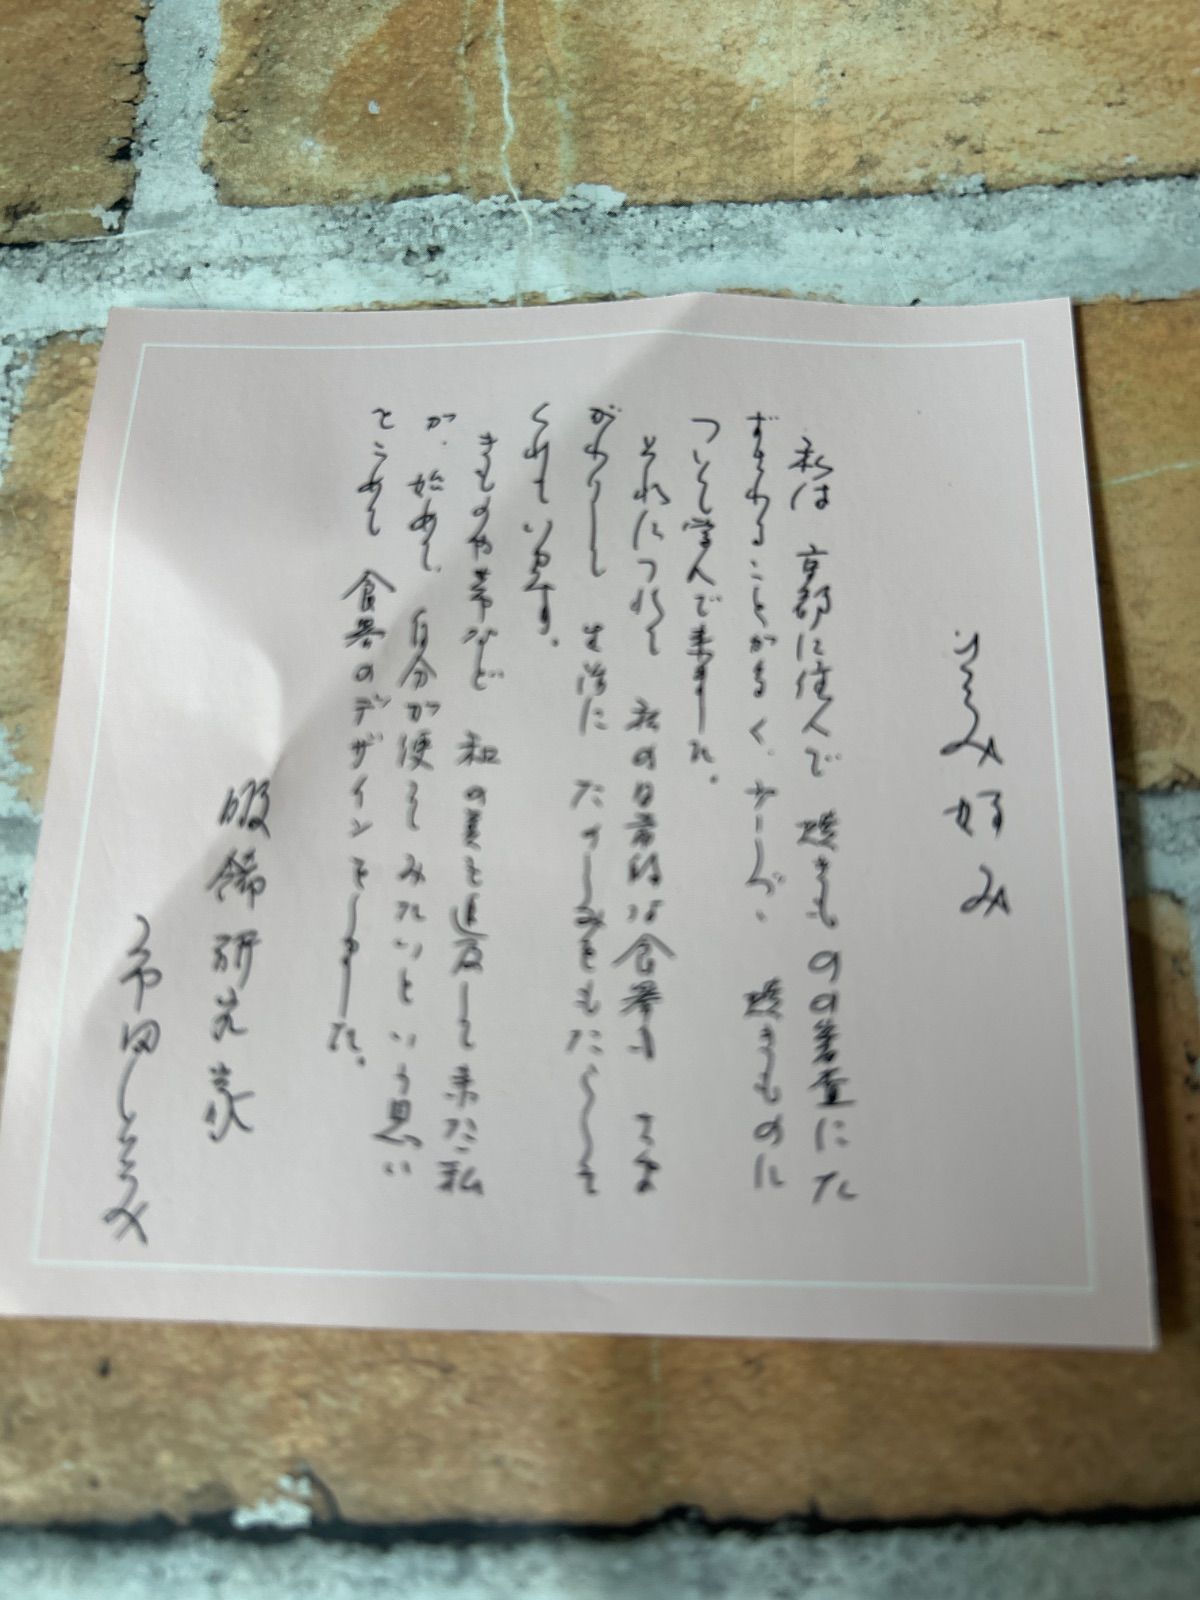 とみ好み
私は 京都に住んで 焼きものの審査にた
ずさわることがあるく、少しづゝ 焼きものに
ついて学んで来ました。
それにつれて 私の日常的な食器も さま
がわりして 生活に たのしみをもたらして
くれています。
きものや帯など 和の美を追及して来た私
が、始めて、自分が使ってみたいという思い
をこめて 食器のデザインをしました。
服飾研究家
市田ひろみ